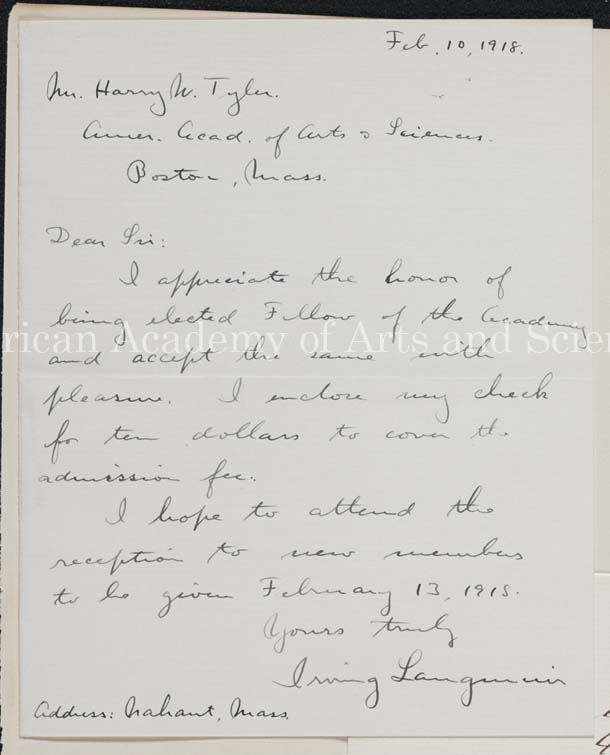 Feb. 10, 1918.
Mr. Harry W. Tyler.
Amer. Acad. of Arts & Sciences.
Boston, Mass.
Dear Sir:
I appreciate the honor of
being elected Fellow of the Academy
rican Academy of Arts and Scien
and accept the same with
pleasure. I enclose my check
for ten dollars to cover the
admission fee.
I hope to attend the
reception to new members
to be given February 13, 1918.
Yours truly
Irving Langmuir
Address: Nahant, Mass.